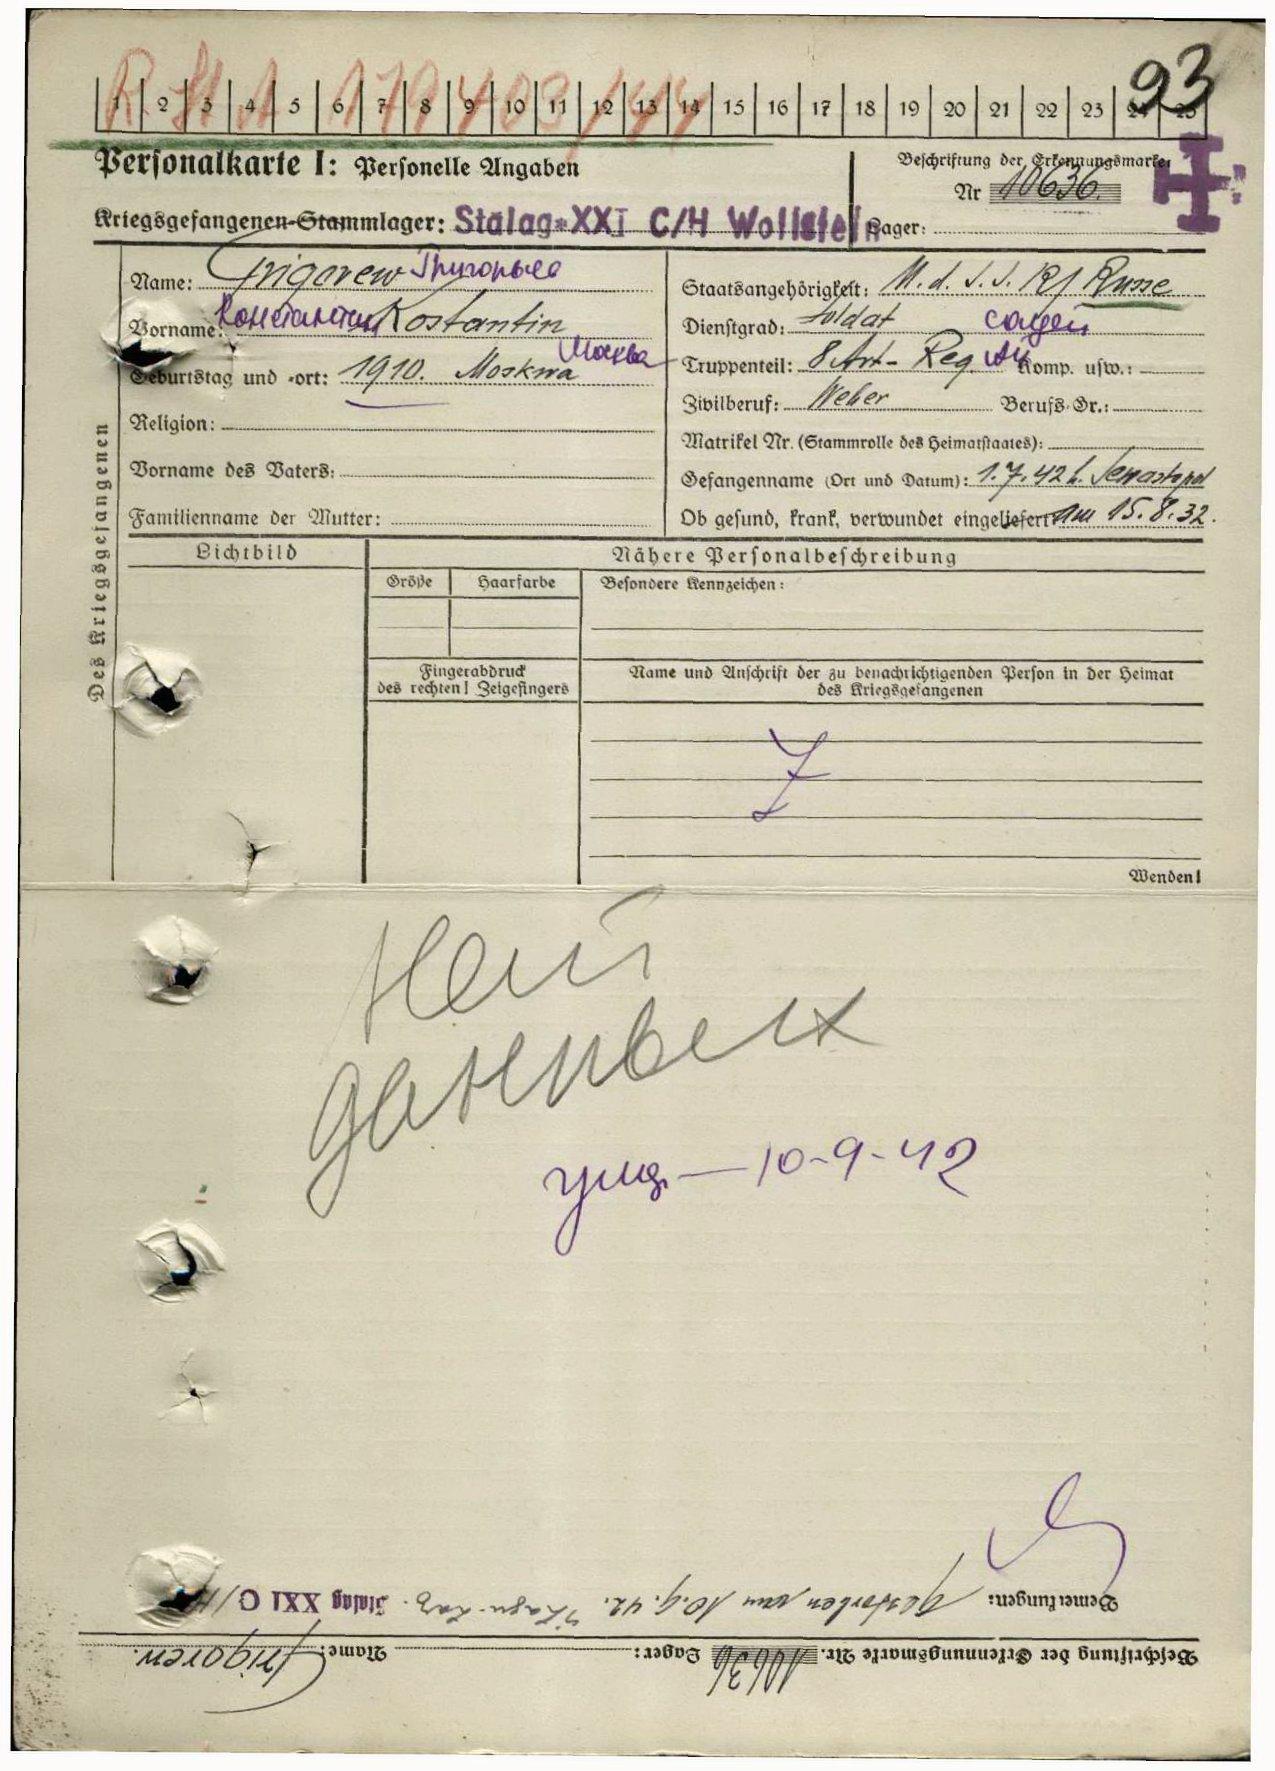 R. St. A 179403/44
1 2 3 4 5 6 7 8 9 10 11 12 13 14 15 16 17 18 19 20 21 22 23 24 25
93
Personalkarte I: Personelle Angaben
Beschriftung der Erkennungsmarke
Nr 10636.
Kriegsgefangenen-Stammlager: Stalag XXI C/H Wollstein
Lager:
Des Kriegsgefangenen
Name: Grigorew Григорьев
Vorname: Константин Kostantin
Geburtstag und -ort: 1910. Moskwa Москва
Religion:
Vorname des Vaters:
Familienname der Mutter:
Staatsangehörigkeit: U. d. S. S. R/ Russe
Dienstgrad: Soldat солдат
Truppenteil: 8 Art-Reg. Komp. usw.:
Zivilberuf: Weber Berufs-Gr.:
Matrikel Nr. (Stammrolle des Heimatstaates):
Gefangenname (Ort und Datum): 1.7.42 b. Sewastopol
Ob gesund, krank, verwundet eingeliefert: am 15.8.32.
Lichtbild
Nähere Personalbeschreibung
Größe Haarfarbe Besondere Kennzeichen:
Fingerabdruck
des rechten! Zeigefingers
Name und Anschrift der zu benachrichtigenden Person in der Heimat
des Kriegsgefangenen
Wenden!
Нет
данных
— 10-9-42
Bemerkungen: Gestorben am 10.9.42. Stalag XXI C/H
Beschriftung der Erkennungsmarke Nr. 10636 Lager: Name: Grigorew.